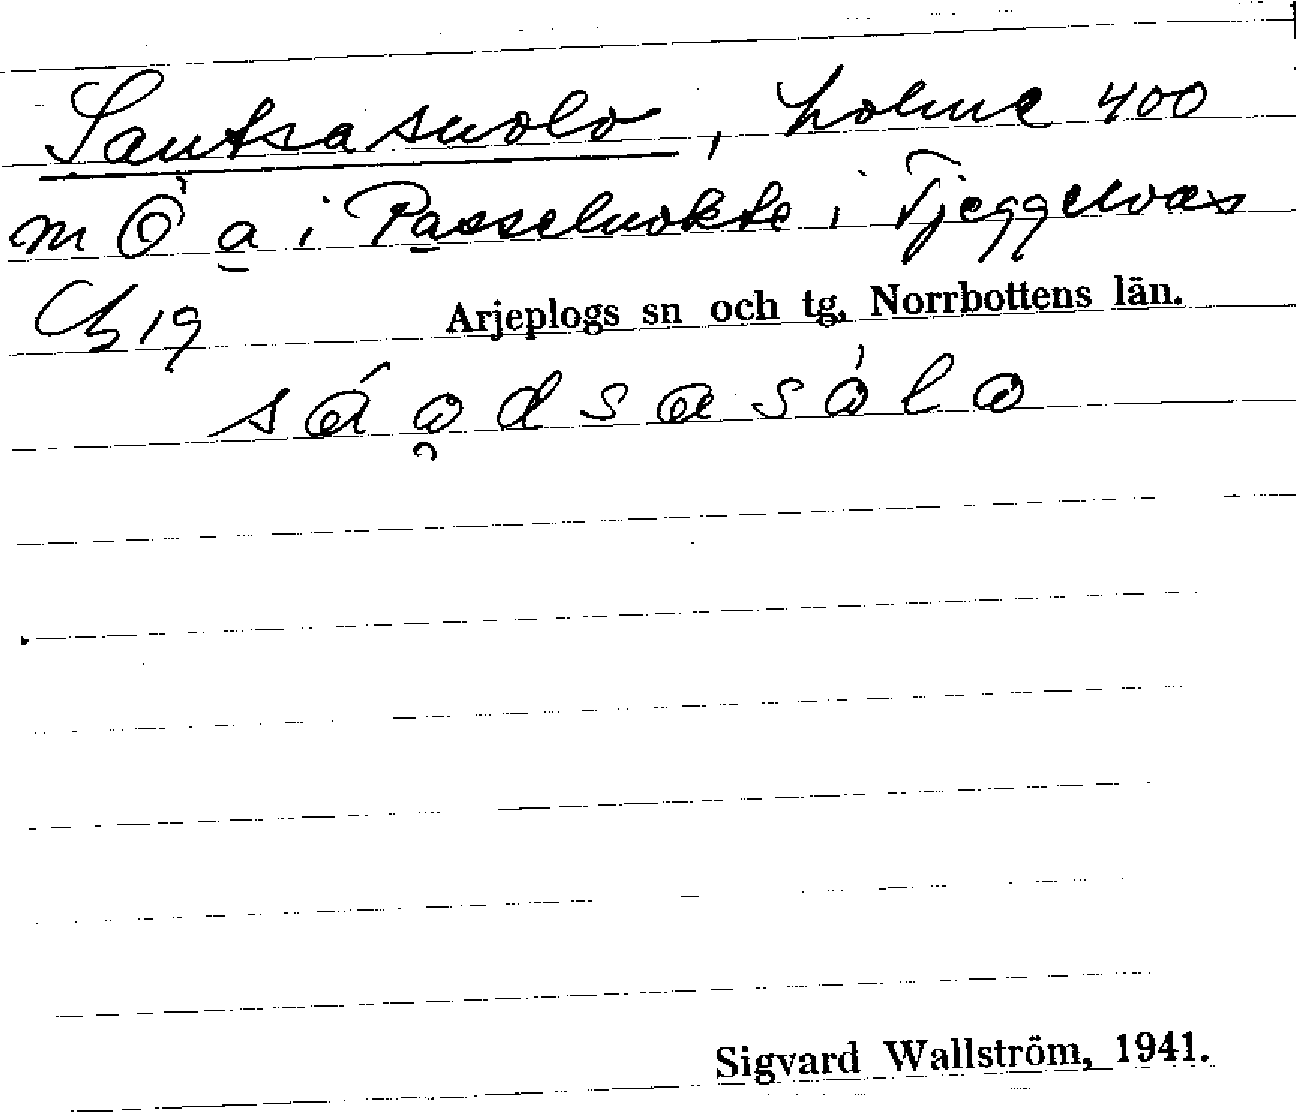 Sautsasuolo, holme 400
m Ö a i Passeluokte i Tjeggelvas
Cb 19
Arjeplogs sn och tg, Norrbottens län.
sáo̯dsasòlo
Sigvard Wallström, 1941.